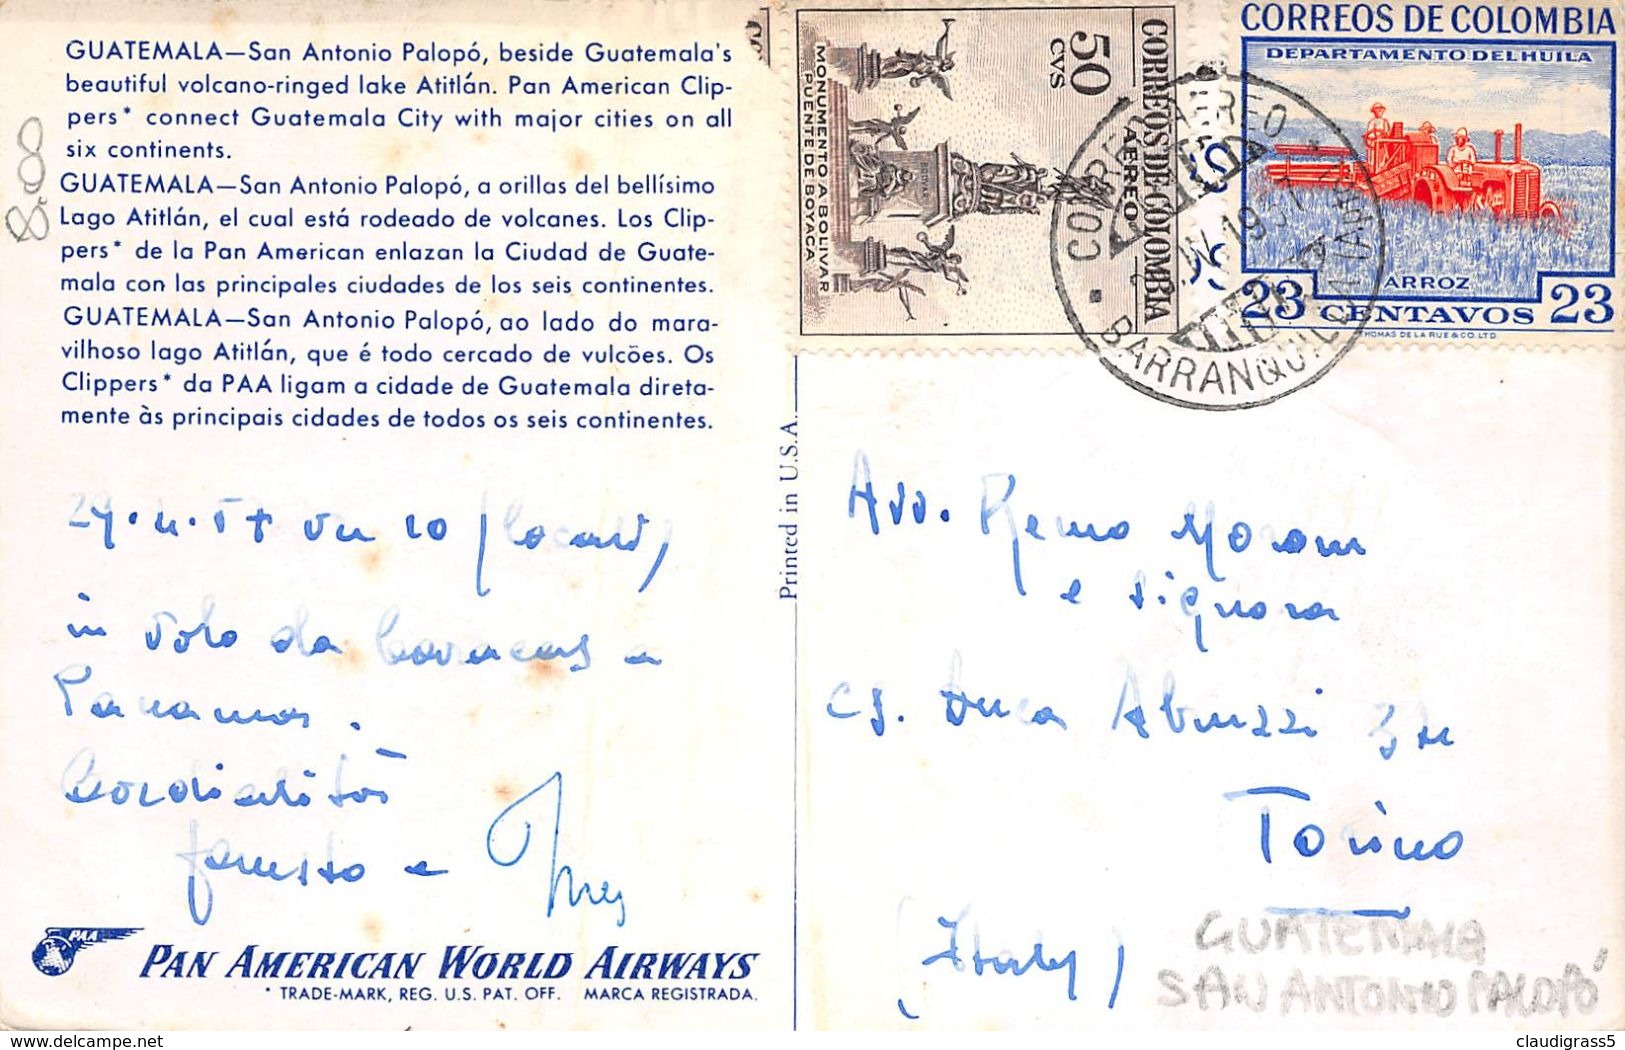 GUATEMALA—San Antonio Palopó, beside Guatemala's
beautiful volcano-ringed lake Atitlán. Pan American Clip-
pers* connect Guatemala City with major cities on all
six continents.
GUATEMALA—San Antonio Palopó, a orillas del bellísimo
Lago Atitlán, el cual está rodeado de volcanes. Los Clip-
pers* de la Pan American enlazan la Ciudad de Guate-
mala con las principales ciudades de los seis continentes.
GUATEMALA—San Antonio Palopó, ao lado do mara-
vilhoso lago Atitlán, que é todo cercado de vulcões. Os
Clippers* da PAA ligam a cidade de Guatemala direta-
mente às principais cidades de todos os seis continentes.
88
in volo da Caracas a
Panama.
Cordialità
fausto e
PAA
PAN AMERICAN WORLD AIRWAYS
* TRADE-MARK, REG. U.S. PAT. OFF. MARCA REGISTRADA.
Printed in U.S.A.
CORREOS DE COLOMBIA
AEREO
50
CVS
MONUMENTO A BOLIVAR
PUENTE DE BOYACA
CORREOS DE COLOMBIA
DEPARTAMENTO DEL HUILA
ARROZ
23 CENTAVOS 23
THOMAS DE LA RUE & CO. LTD
CORREO AEREO
BARRANQUILLA
Avv. Remo Morone
e Signora
Cs. Duca Abruzzi
Torino
(Italy)
GUATEMALA
SAN ANTONIO PALOPÓ
claudigrass5
delcampe.net